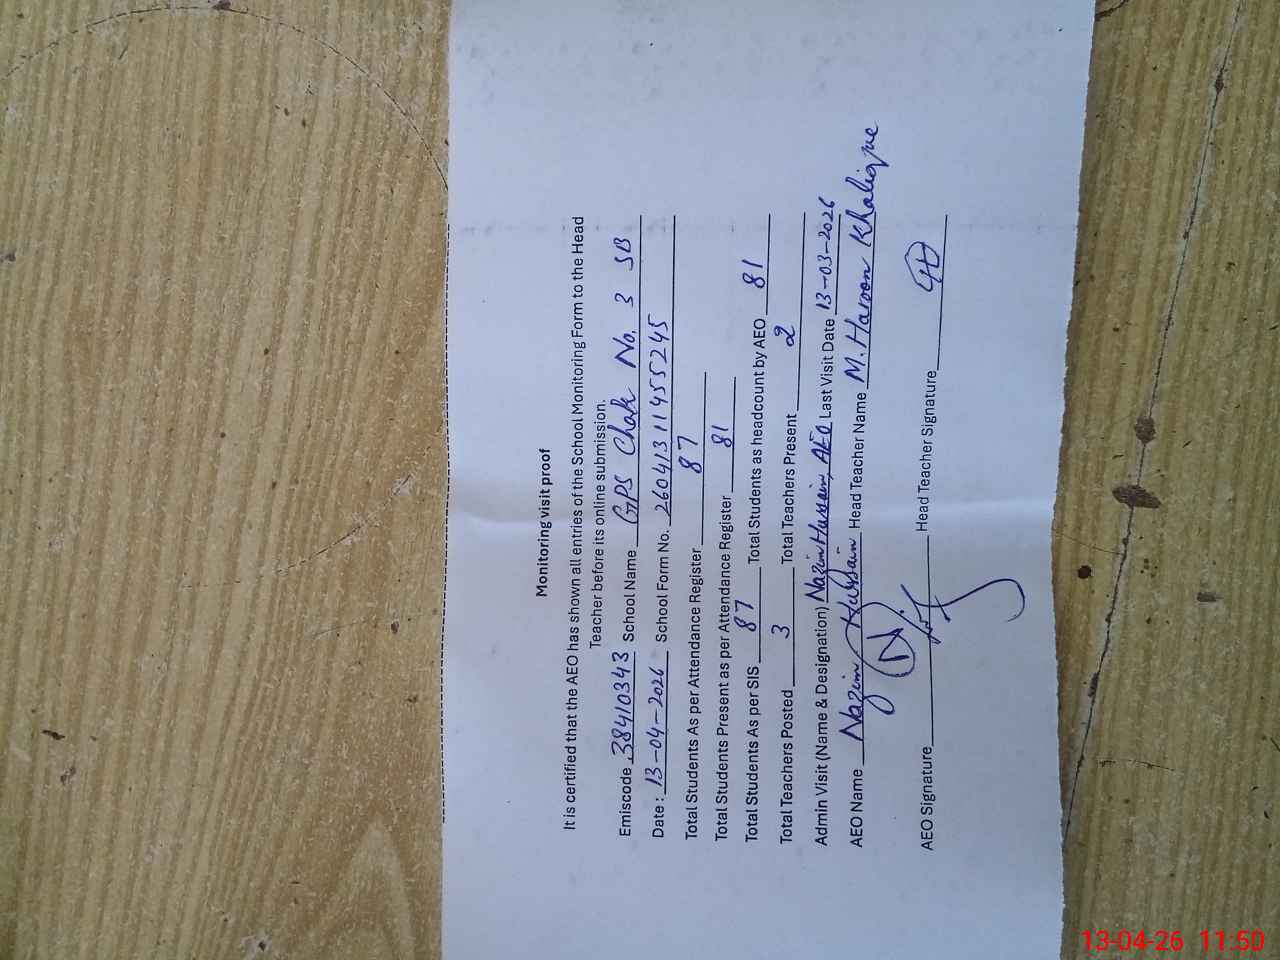 Monitoring visit proof
It is certified that the AEO has shown all entries of the School Monitoring Form to the Head
Teacher before its online submission.
Emiscode 38410343 School Name GPS Chak No. 3 SB
Date: 13-04-2026 School Form No. 26041311455245
Total Students As per Attendance Register 87
Total Students Present as per Attendance Register 81
Total Students As per SIS 87 Total Students as headcount by AEO 81
Total Teachers Posted 3 Total Teachers Present 2
Admin Visit (Name & Designation) Nazim Hussain, AEO Last Visit Date 13-03-2026
AEO Name Nazim Hussain Head Teacher Name M. Haroon Khalique
AEO Signature Head Teacher Signature
13-04-26 11:50